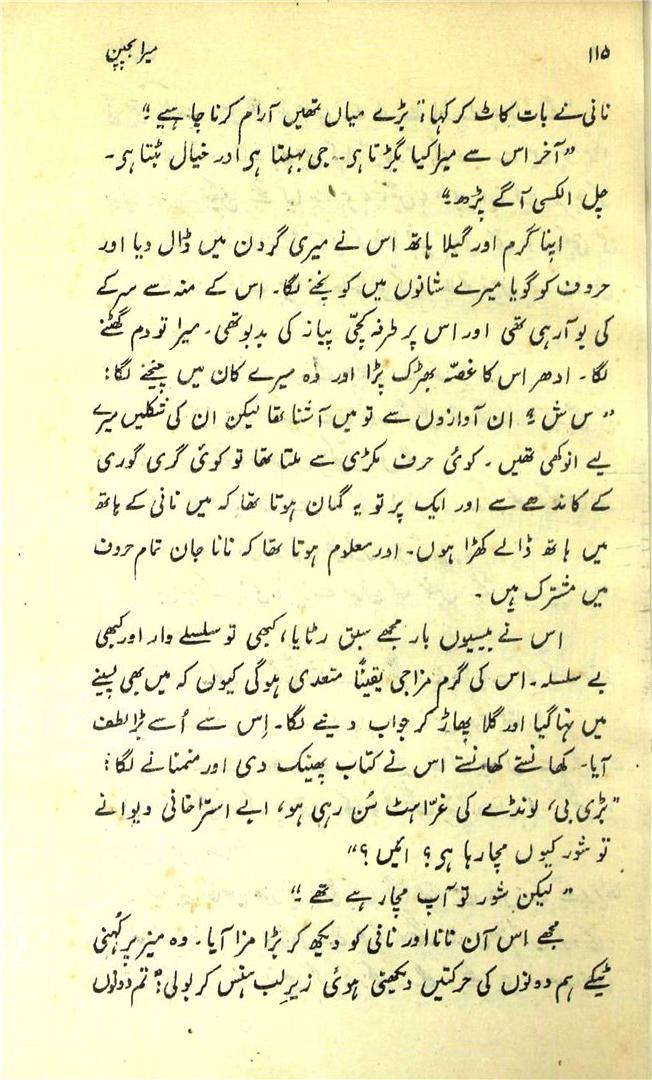 ۱۱۵
میرا بچپن
نانی نے بات کاٹ کر کہا: "بڑے میاں تمھیں آرام کرنا چاہیے۔"
"آخر اس سے میرا کیا بگڑتا ہی۔ جی بہلتا ہی اور خیال بٹتا ہی۔
چل الکسی آگے پڑھ۔"
اپنا گرم اور گیلا ہاتھ اس نے میری گردن میں ڈال دیا اور
حروف کو گویا میرے شانوں میں کوپنچنے لگا۔ اس کے منہ سے سرکے
کی بو آرہی تھی اور اس پر طرفہ کچّی پیاز کی بدبو تھی۔ میرا تو دم گھٹنے
لگا۔ ادھر اس کا غصّہ بھڑک پڑا اور وہ میرے کان میں چیخنے لگا:
"س ش۔" ان آوازوں سے تو میں آشنا تھا لیکن ان کی شکلیں میرے
لیے انوکھی تھیں۔ کوئی حرف مکڑی سے ملتا تھا تو کوئی گری گوری
کے کاندھے سے اور ایک پر تو یہ گمان ہوتا تھا کہ میں نانی کے ہاتھ
میں ہاتھ ڈالے کھڑا ہوں۔ اور معلوم ہوتا تھا کہ نانا جان تمام حروف
میں مشترک ہیں۔
اس نے بیسیوں بار مجھے سبق رٹایا، کبھی تو سلسلے وار اور کبھی
بے سلسلہ۔ اس کی گرم مزاجی یقیناً متعدی ہوگی کیوں کہ میں بھی پسینے
میں نہا گیا اور گلا پھاڑ کر جواب دینے لگا۔ اِس سے اُسے بڑا لطف
آیا۔ کھانستے کھانستے اس نے کتاب پھینک دی اور منمنانے لگا:
"بڑی بی، لونڈے کی غرّاہٹ سُن رہی ہو، ابے استراخانی دیوانے
تو شور کیوں مچا رہا ہی؟ ائیں؟"
"لیکن شور تو آپ مچا رہے تھے۔"
مجھے اس آن نانا اور نانی کو دیکھ کر بڑا مزا آیا۔ وہ میز پر کُہنی
ٹیکے ہم دونوں کی حرکتیں دیکھتی ہوئی زیرِ لب ہنس کر بولی: "تم دونوں